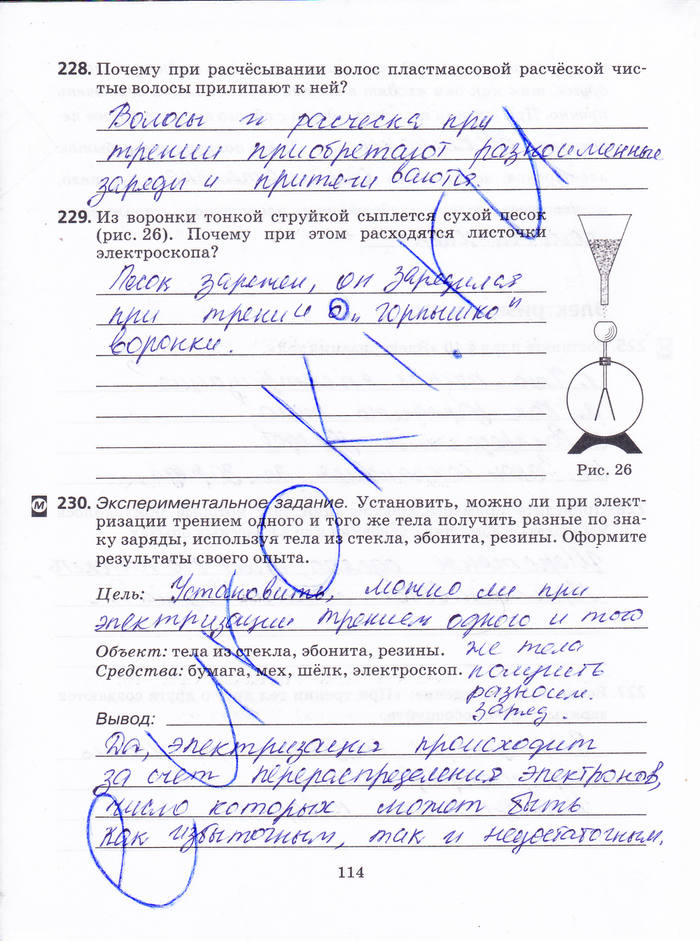 228. Почему при расчёсывании волос пластмассовой расчёской чис-
тые волосы прилипают к ней?
Волосы и расческа при
трении приобретают разноименные
заряды и притягиваются.
229. Из воронки тонкой струйкой сыплется сухой песок
(рис. 26). Почему при этом расходятся листочки
электроскопа?
Песок заряжен, он зарядился
при трении о „горлышко"
воронки.
Рис. 26
м 230. Экспериментальное задание. Установить, можно ли при элект-
ризации трением одного и того же тела получить разные по зна-
ку заряды, используя тела из стекла, эбонита, резины. Оформите
результаты своего опыта.
Цель: Установить, можно ли при
электризации трением одного и того
Объект: тела из стекла, эбонита, резины. же тела
Средства: бумага, мех, шёлк, электроскоп. получить
разноим.
Вывод: заряд.
Да, электризация происходит
за счет перераспределения электронов,
число которых может быть
как избыточным, так и недостаточным.
114